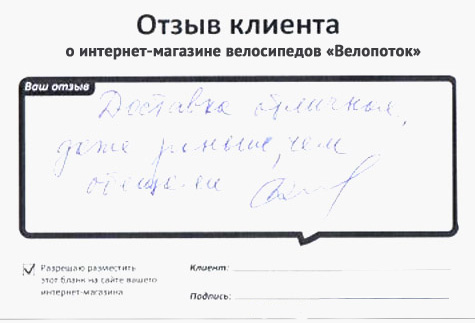 Отзыв клиента
о интернет-магазине велосипедов «Велопоток»
Ваш отзыв
Доставка отличная,
даже раньше, чем
обещали
Разрешаю разместить
этот бланк на сайте вашего
интернет-магазина
Клиент:
Подпись: